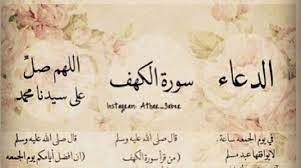 الدعاء
في يوم الجمعه ساعة.
لا يوافقها عبد مسلم
سورة الكهف
Instagram: Athar_
قال صلى الله عليه وسلم
(من قرأ سورة الكهف
اللهم صلِّ
على سيدنا محمد
قال صلى الله عليه وسلم
(ان افضل أيامكم يوم الجمعه